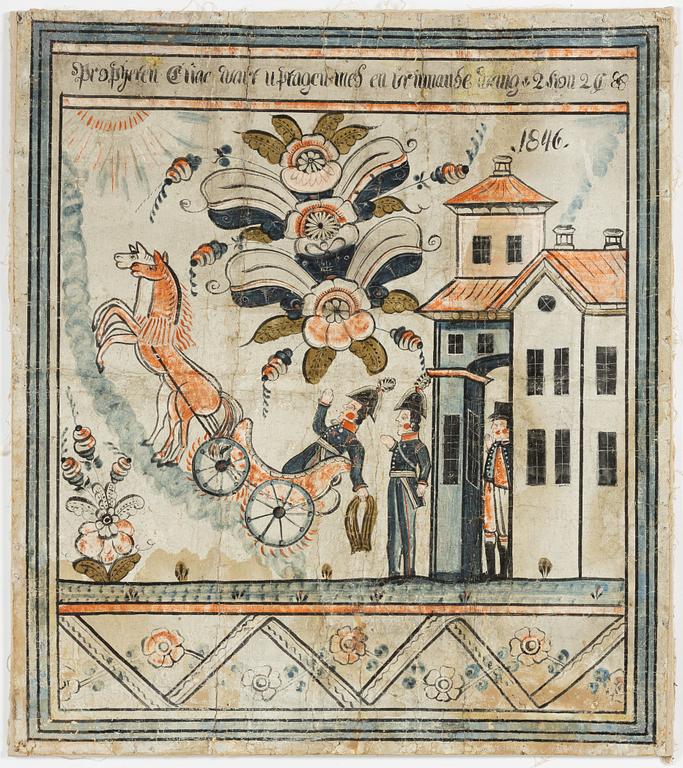 Propheten Elias wart uptagen med en brinnande wang. 2 Kon 2 C
.1846.